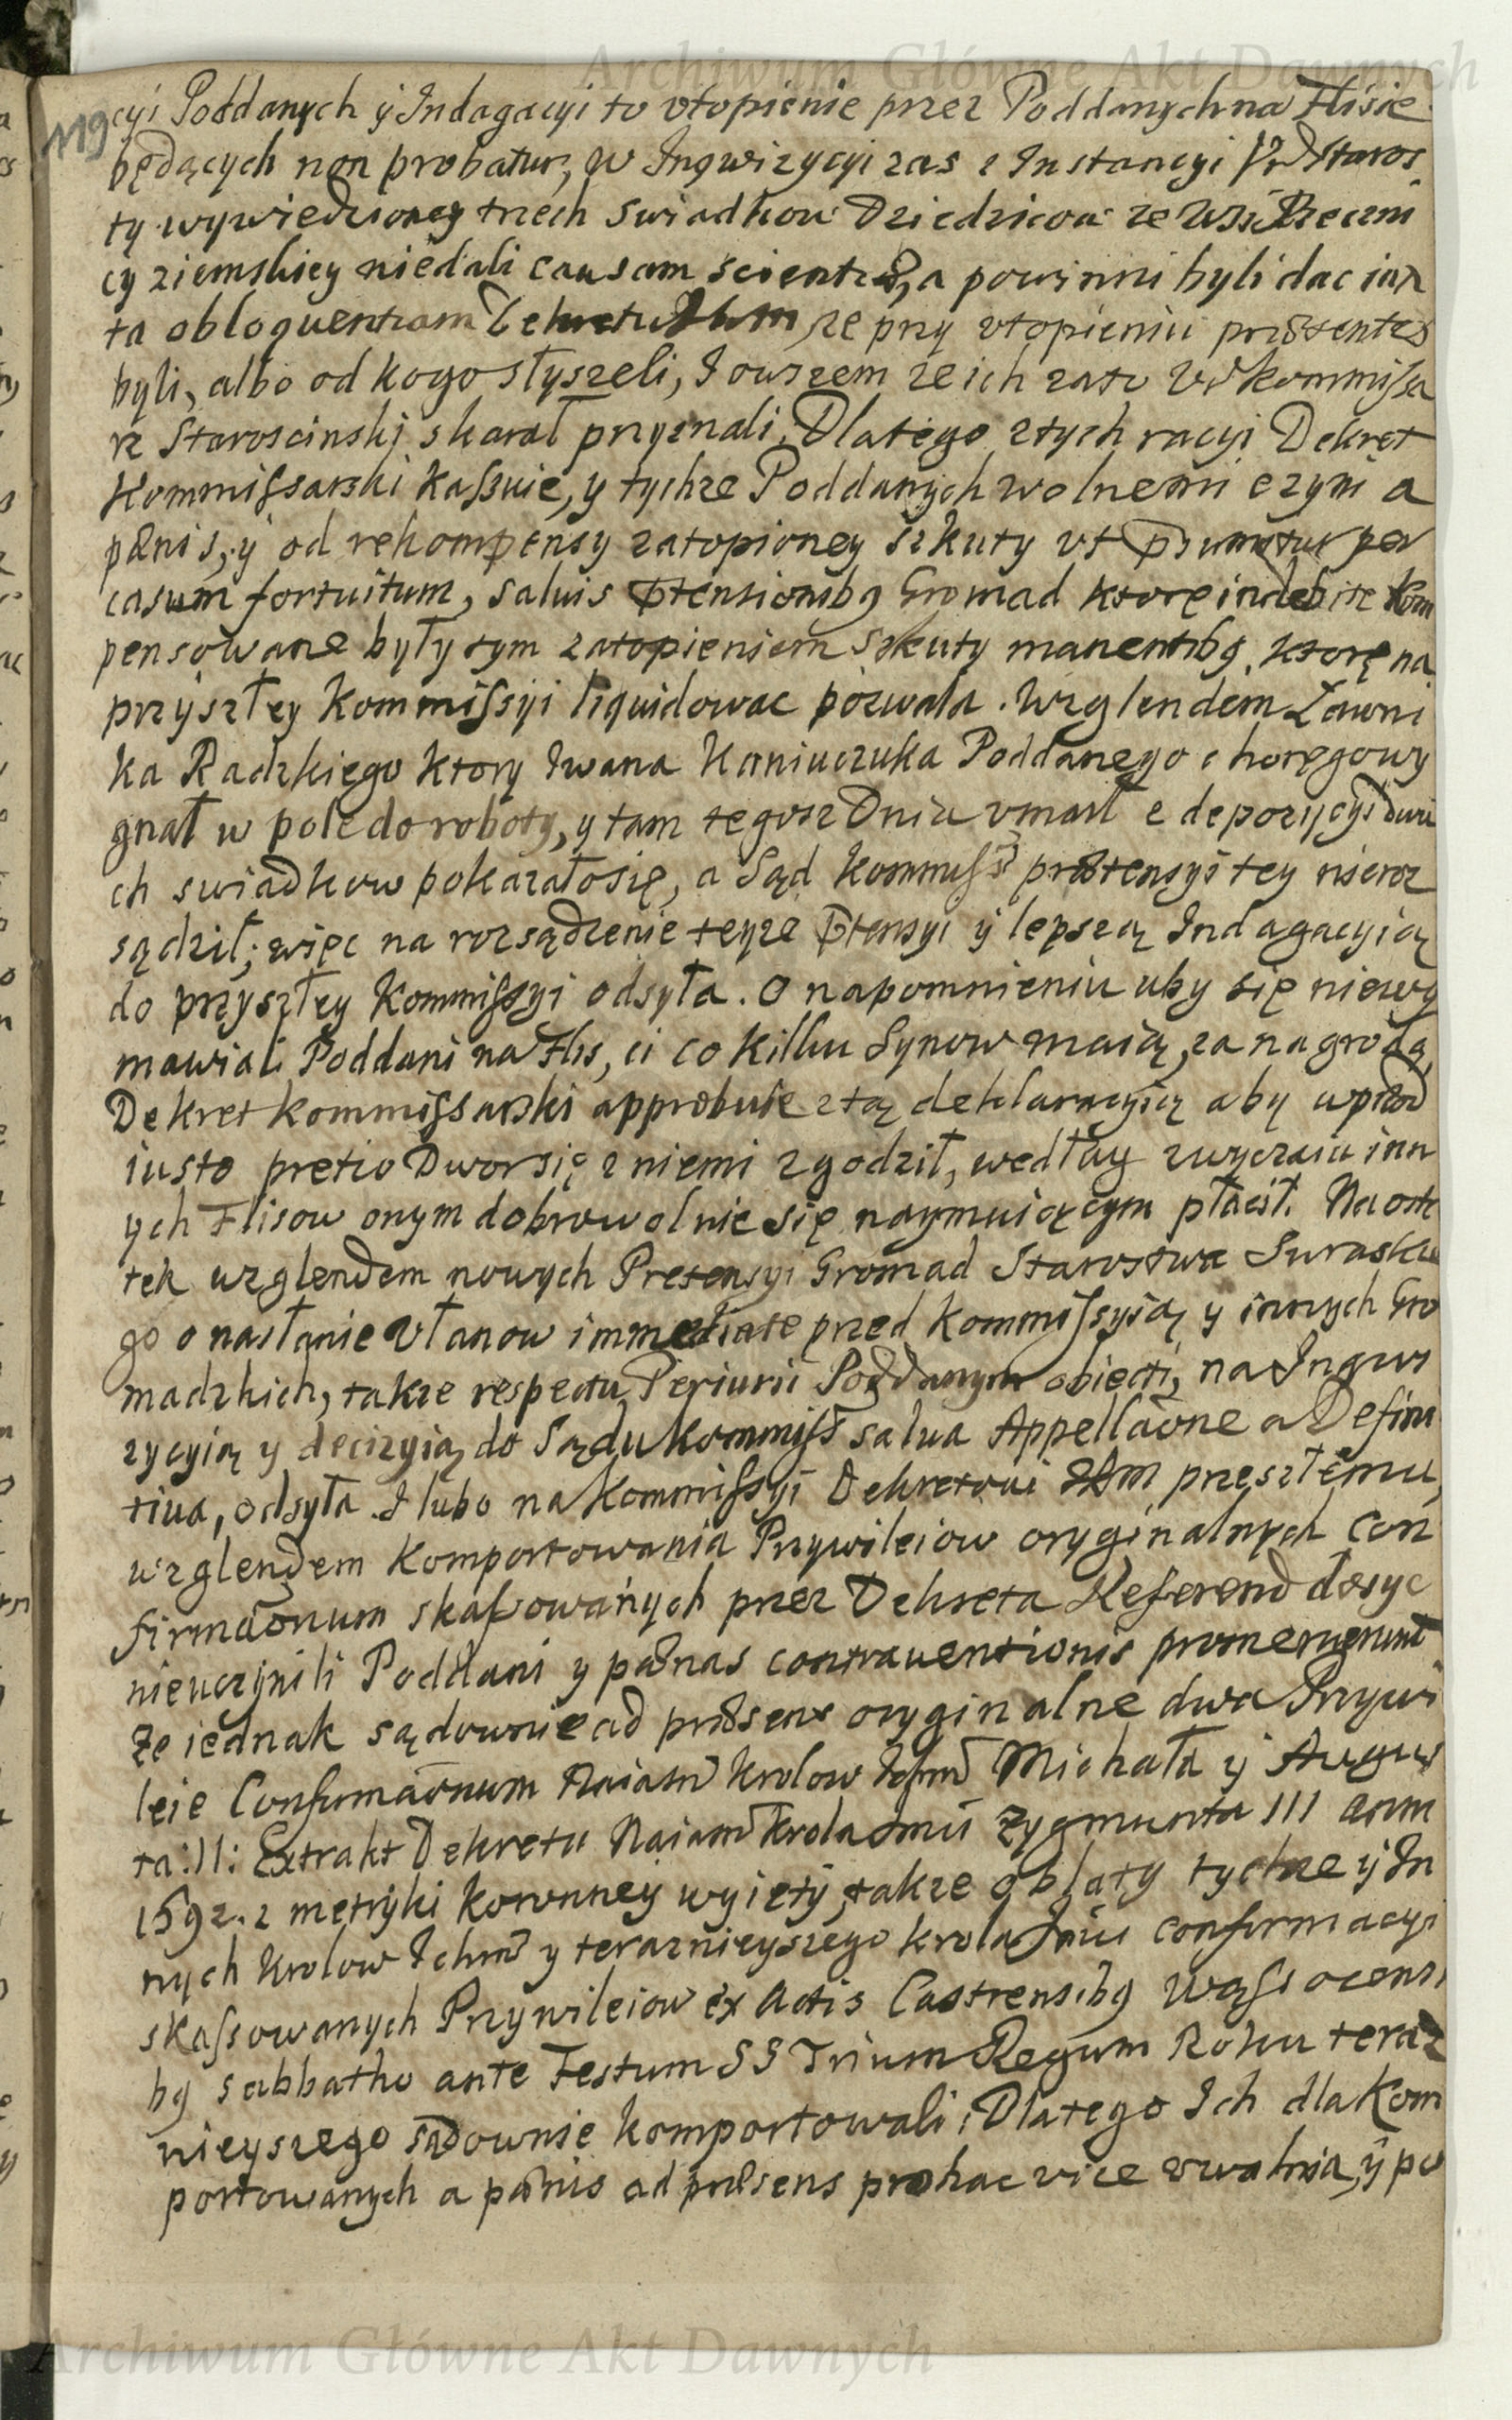 Archiwum Główne Akt Dawnych
119
cyi Poddanych y Indagacyi to vtopienie przez Poddanych na Flisie
będących non probatur, w Inqwizycyi zas e Instancyi Star̃os
ty wywiedzioney trzech swiadkow Dziedzicow ze Wsi Rzeczni
cy ziemskiey niedali causam scientiæ, a powinni byli dac iux
ta obloquentiam Dekretu, ze przy vtopieniu præsentes
byli, albo od kogo słyszeli, I owszem ze ich zato Kommissa
rz Staroscinski skarał przyznali, Dlatego z tych racyi Dekret
Kommissarski kassuie, y tychze Poddanych wolnemi czyni a
pænis, y od rekompensy zatopioney szkuty vt per
casum fortuitum, saluis ptensionibq Gromad ktore indebite kom
pensowane były tym zatopieniem szkuty manentibq, ktorę na
przyszłey Kommissyi liquidowac pozwala. Wzglendem Ławni
ka Radzkiego ktory Iwana Koniuczuka Poddanego choręgowy
gnał w pole do roboty, y tam tegosz Dnia vmarł e depozycyi dwu
ch swiadkow pokazałosię, a Sąd Kommiss prætensyi tey nieroz
sądził; więc na rozsądzenie teyze ptensyi y lepszą Indagacyią
do przyszłey Kommissyi odsyła. O napomnieniu aby się niewy
mawiali Poddani na Flis, ci co kilku Synow maią, za nagrodą
Dekret Kommissarski approbuie z tą deklaracyią aby wprzod
iusto pretio Dwor się z niemi zgodził, według zwyczaiu inn
ych Flisow onym dobrowolnie się naymuiącym płacił. Na osta
tek wzglendem nowych Pretensyi Gromad Starostwa Suraskie
go o nasłanie Vłanow immediate przed Kommissyią y innych Gro
madzkich, takze respectu Periurii Poddanym obiecti, na Inqwi
zycyią y decizyią do Sądu Kommiss salua Appellaõne a Defini
tiua, odsyła. I lubo na Kommissyi Dekretowi przeszłemu,
wzglendem komportowania Przywileiow oryginalnych Con
firmaõnum skassowanych przez Dekreta Referend dosyc
nieuczynili Poddani y pænas contrauentionis promeruerunt
Ze iednak sądownie ad præsens oryginalne dwa Przywi
leie Confirmaõnum Naiasn Krolow Ichm Michała y Augus
ta: II: Extrakt Dekretu Naiasn Krola Jmci Zygmunta III Anni
1592. z metryki koronney wyięty, takze oblaty tychze y In
nych Krolow Ichm y teraznieyszego Krola Jmci confirmacyi
skassowanych Przywileiow ex Actis Castrensibq Wąsocensi
bq sabbatho ante Festum SS Trium Regum Roku teraz
nieyszego sądownie komportowali, Dlatego Ich dla kom
portowanych a pænis ad præsens pro hac vice vwalnia, y po
Archiwum Główne Akt Dawnych